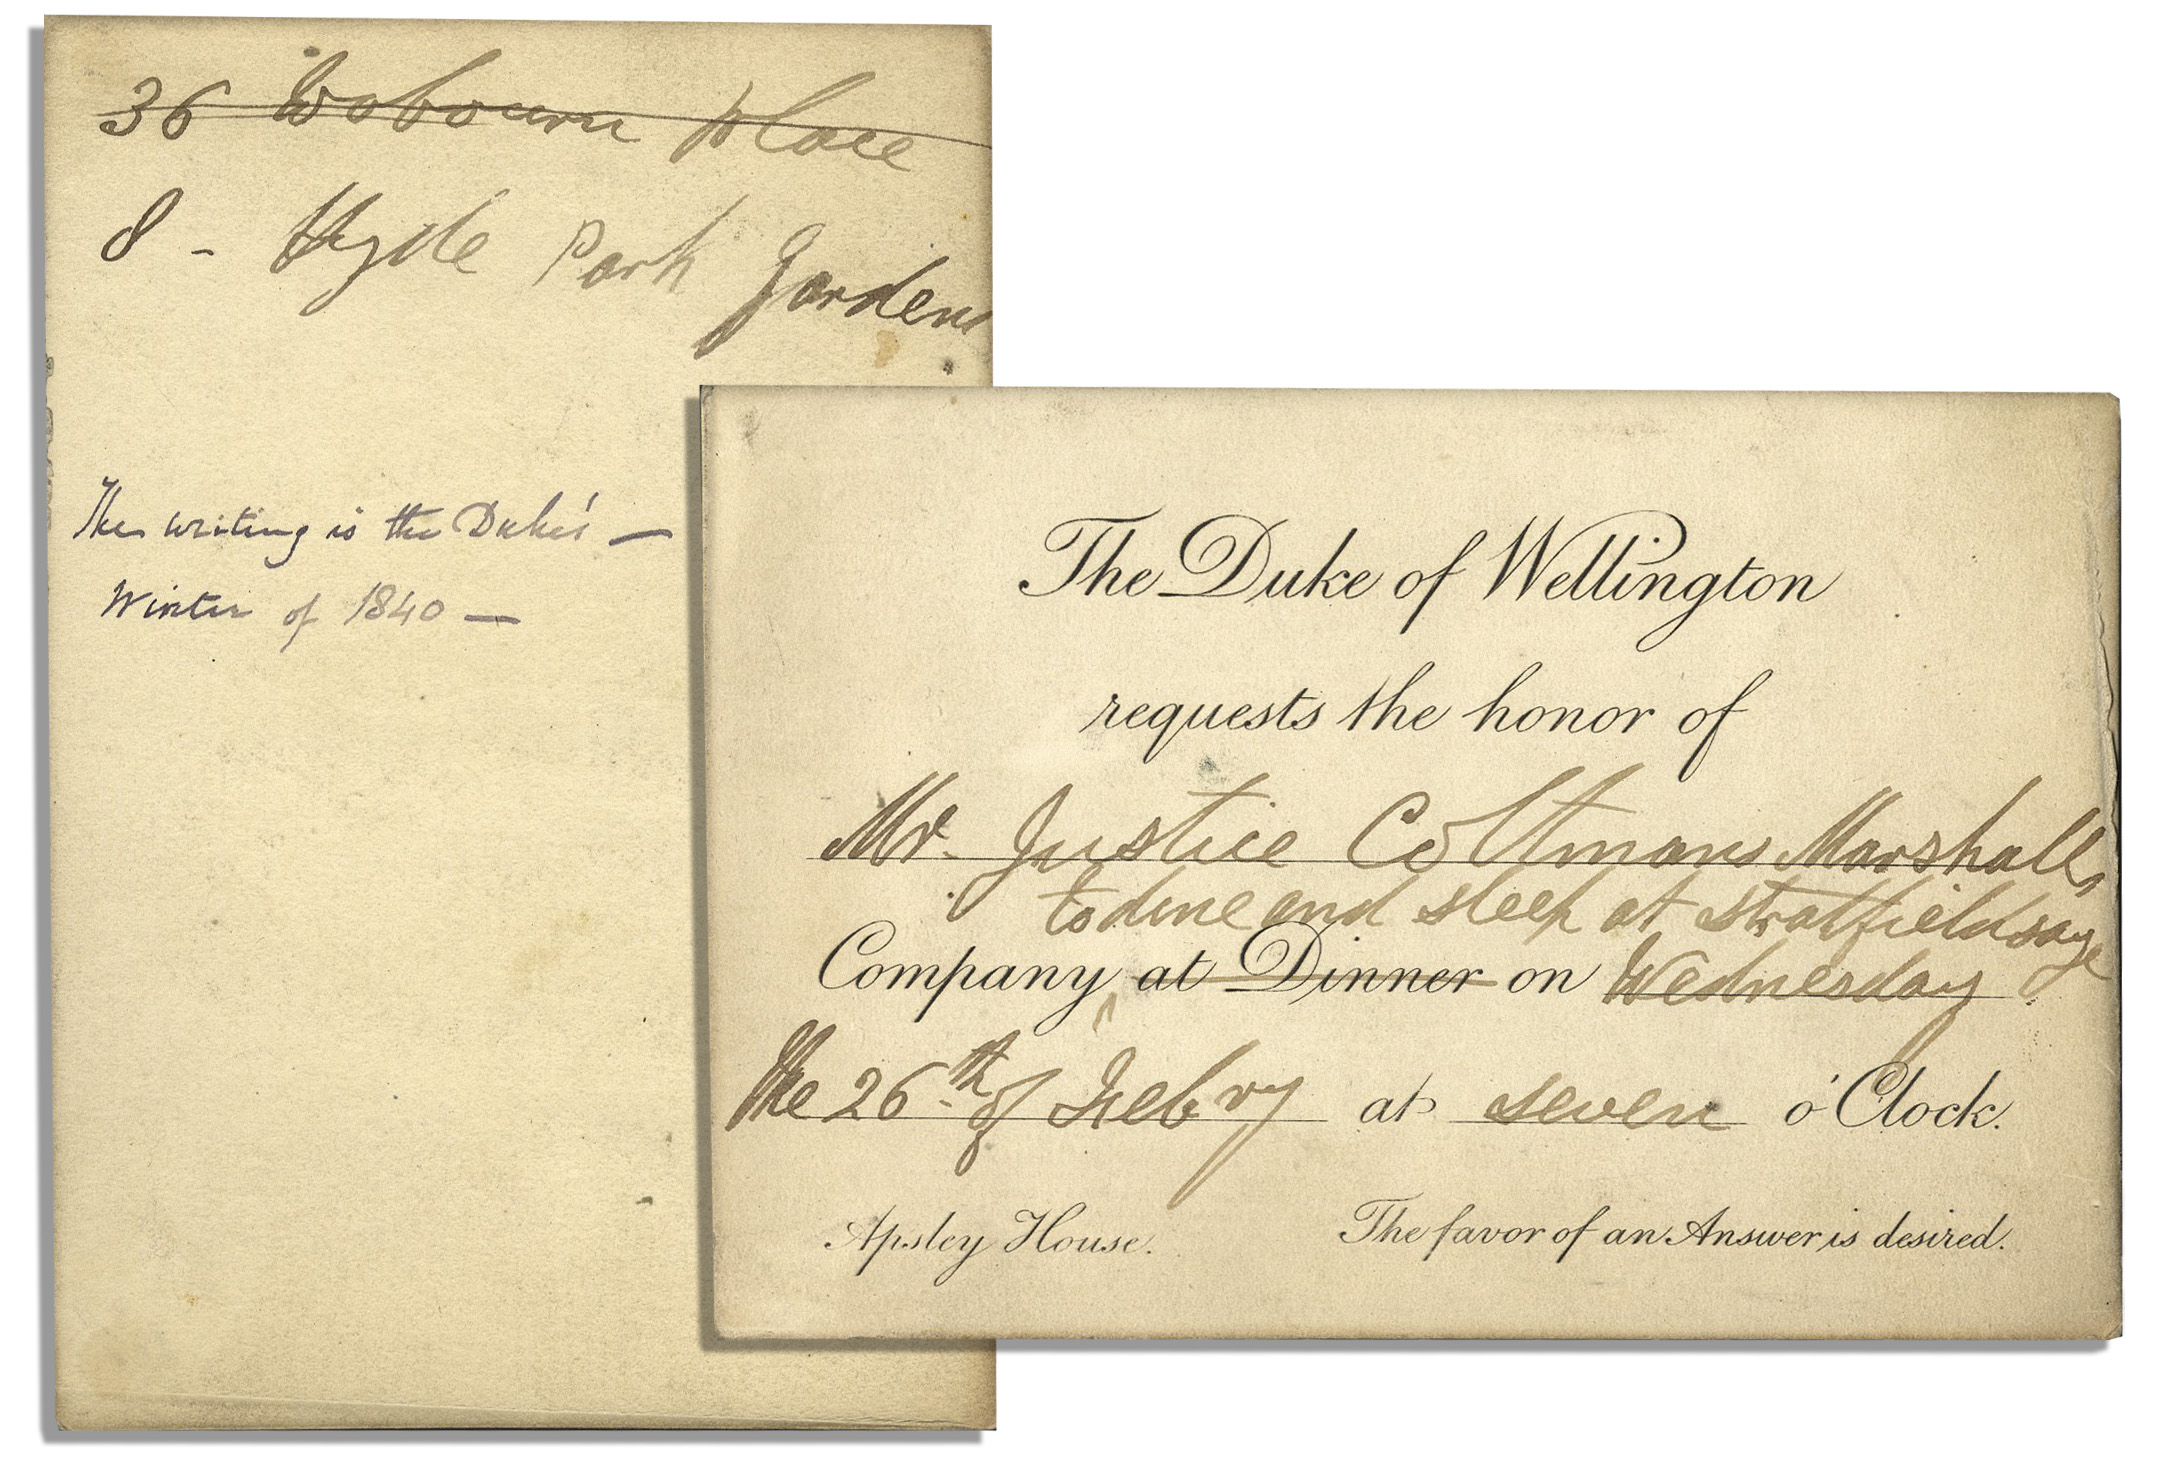 36 Wobourn Place
8 - Hyde Park Gardens
The writing is the Duke's —
Winter of 1840 —
The Duke of Wellington
requests the honor of
Mr. Justice Coltmans Marshall's
to dine and sleep at Stratfieldsaye
Company at Dinner on Wednesday
the 26th of Febry at seven o'Clock.
Apsley House. The favor of an Answer is desired.